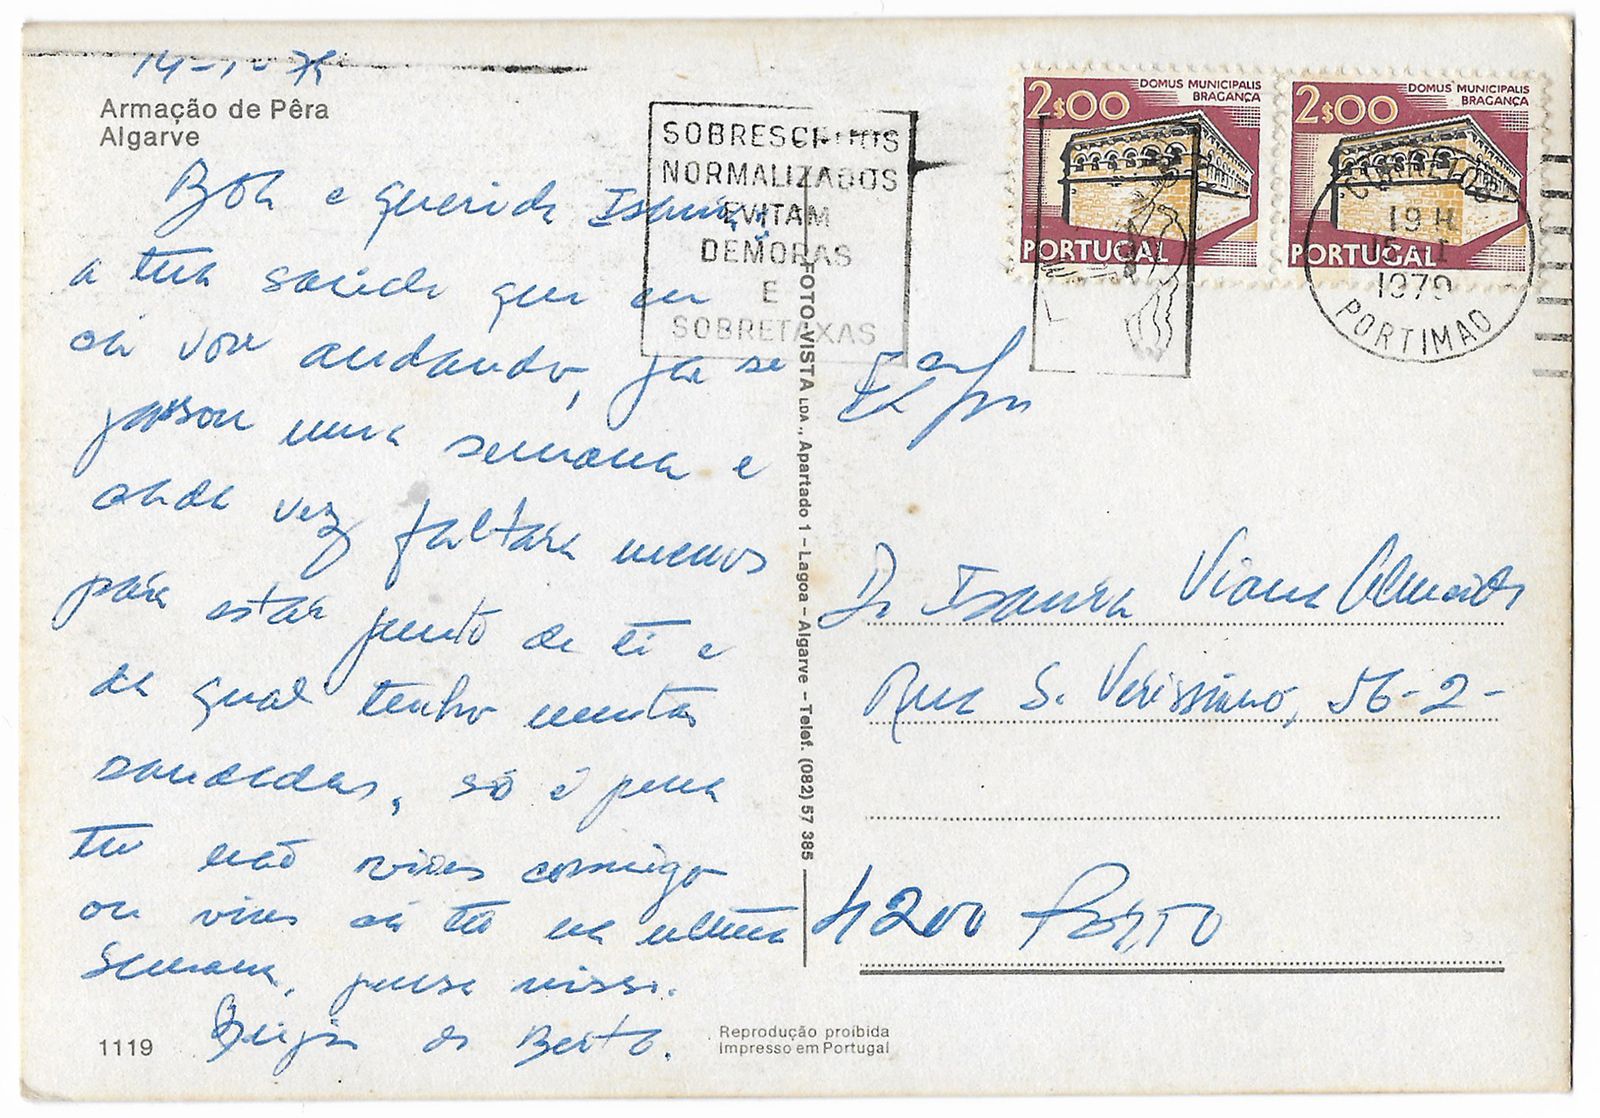 Armação de Pêra
Algarve
Boa e querida Isaura,
a tua saúde que eu
cá vou andando, já se
passou uma semana e
cada vez faltará menos
para estar junto de ti e
da qual tenho muitas
saudades, só é pena
tu não vires comigo
ou vires cá tu na ultima
semana, pensa nisso.
Beijos do Berto.
1119
SOBRESCRITOS
NORMALIZADOS
EVITAM
DEMORAS
E
SOBRETAXAS
FOTO-VISTA LDA., Apartado 1 - Lagoa - Algarve - Telef. (082) 57 385
2$00 DOMUS MUNICIPALIS
BRAGANÇA
PORTUGAL
2$00 DOMUS MUNICIPALIS
BRAGANÇA
PORTUGAL
CORREIOS
19 H
1979
PORTIMAO
Isaura Viana Almeida
Rua S. Veríssimo, 56-2-
4200 Porto
Reprodução proíbida
Impresso em Portugal